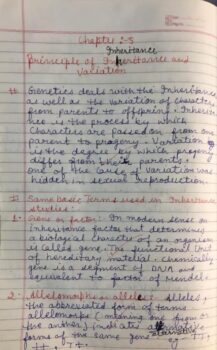 Chapter 2.5
Inheritance
Principle of Inheritance and
Variation
Genetics deals with the Inheritance
as well as the variation of characters
from parents to offspring. Inherit
is the process by which
Characters are passed on from one
parent to progeny. Variation
is the degree by which progeny
differ from their parents.
one of the cause of variation was
hidden in sexual reproduction.
Some basic Terms used in Inheritance
studies.
1. Genes or factor: In modern sense an
inheritance factor that determines
a biological character of an organism
is called gene. The functional Unit
of hereditary material. chemically
gene is a segment of DNA and
equivalent to factor of Mendel.
2. Allelomorphs or alleles: Alleles,
the abbreviated form of terms
allelomorphs (meaning one form or
the another) indicates
forms of the same gene